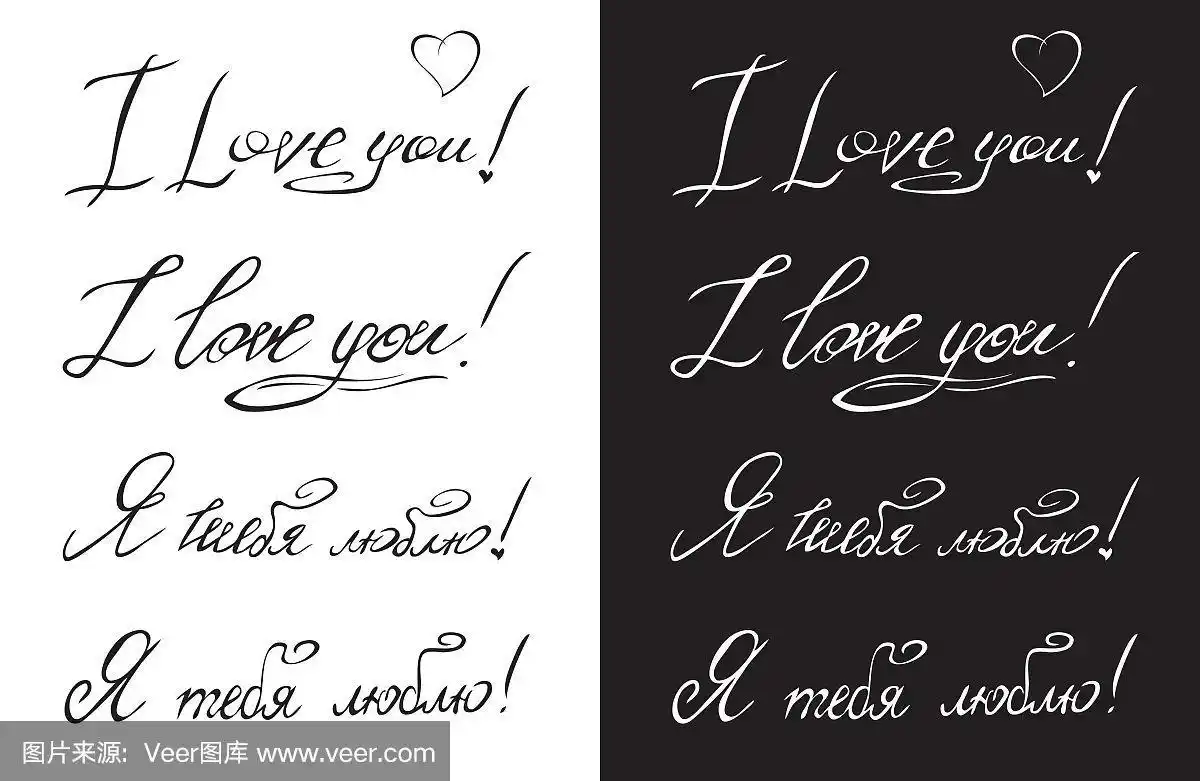 I Love you!
I love you!
Я тебя люблю!
Я тебя люблю!
I Love you!
I love you!
Я тебя люблю!
Я тебя люблю!
图片来源: Veer图库 www.veer.com